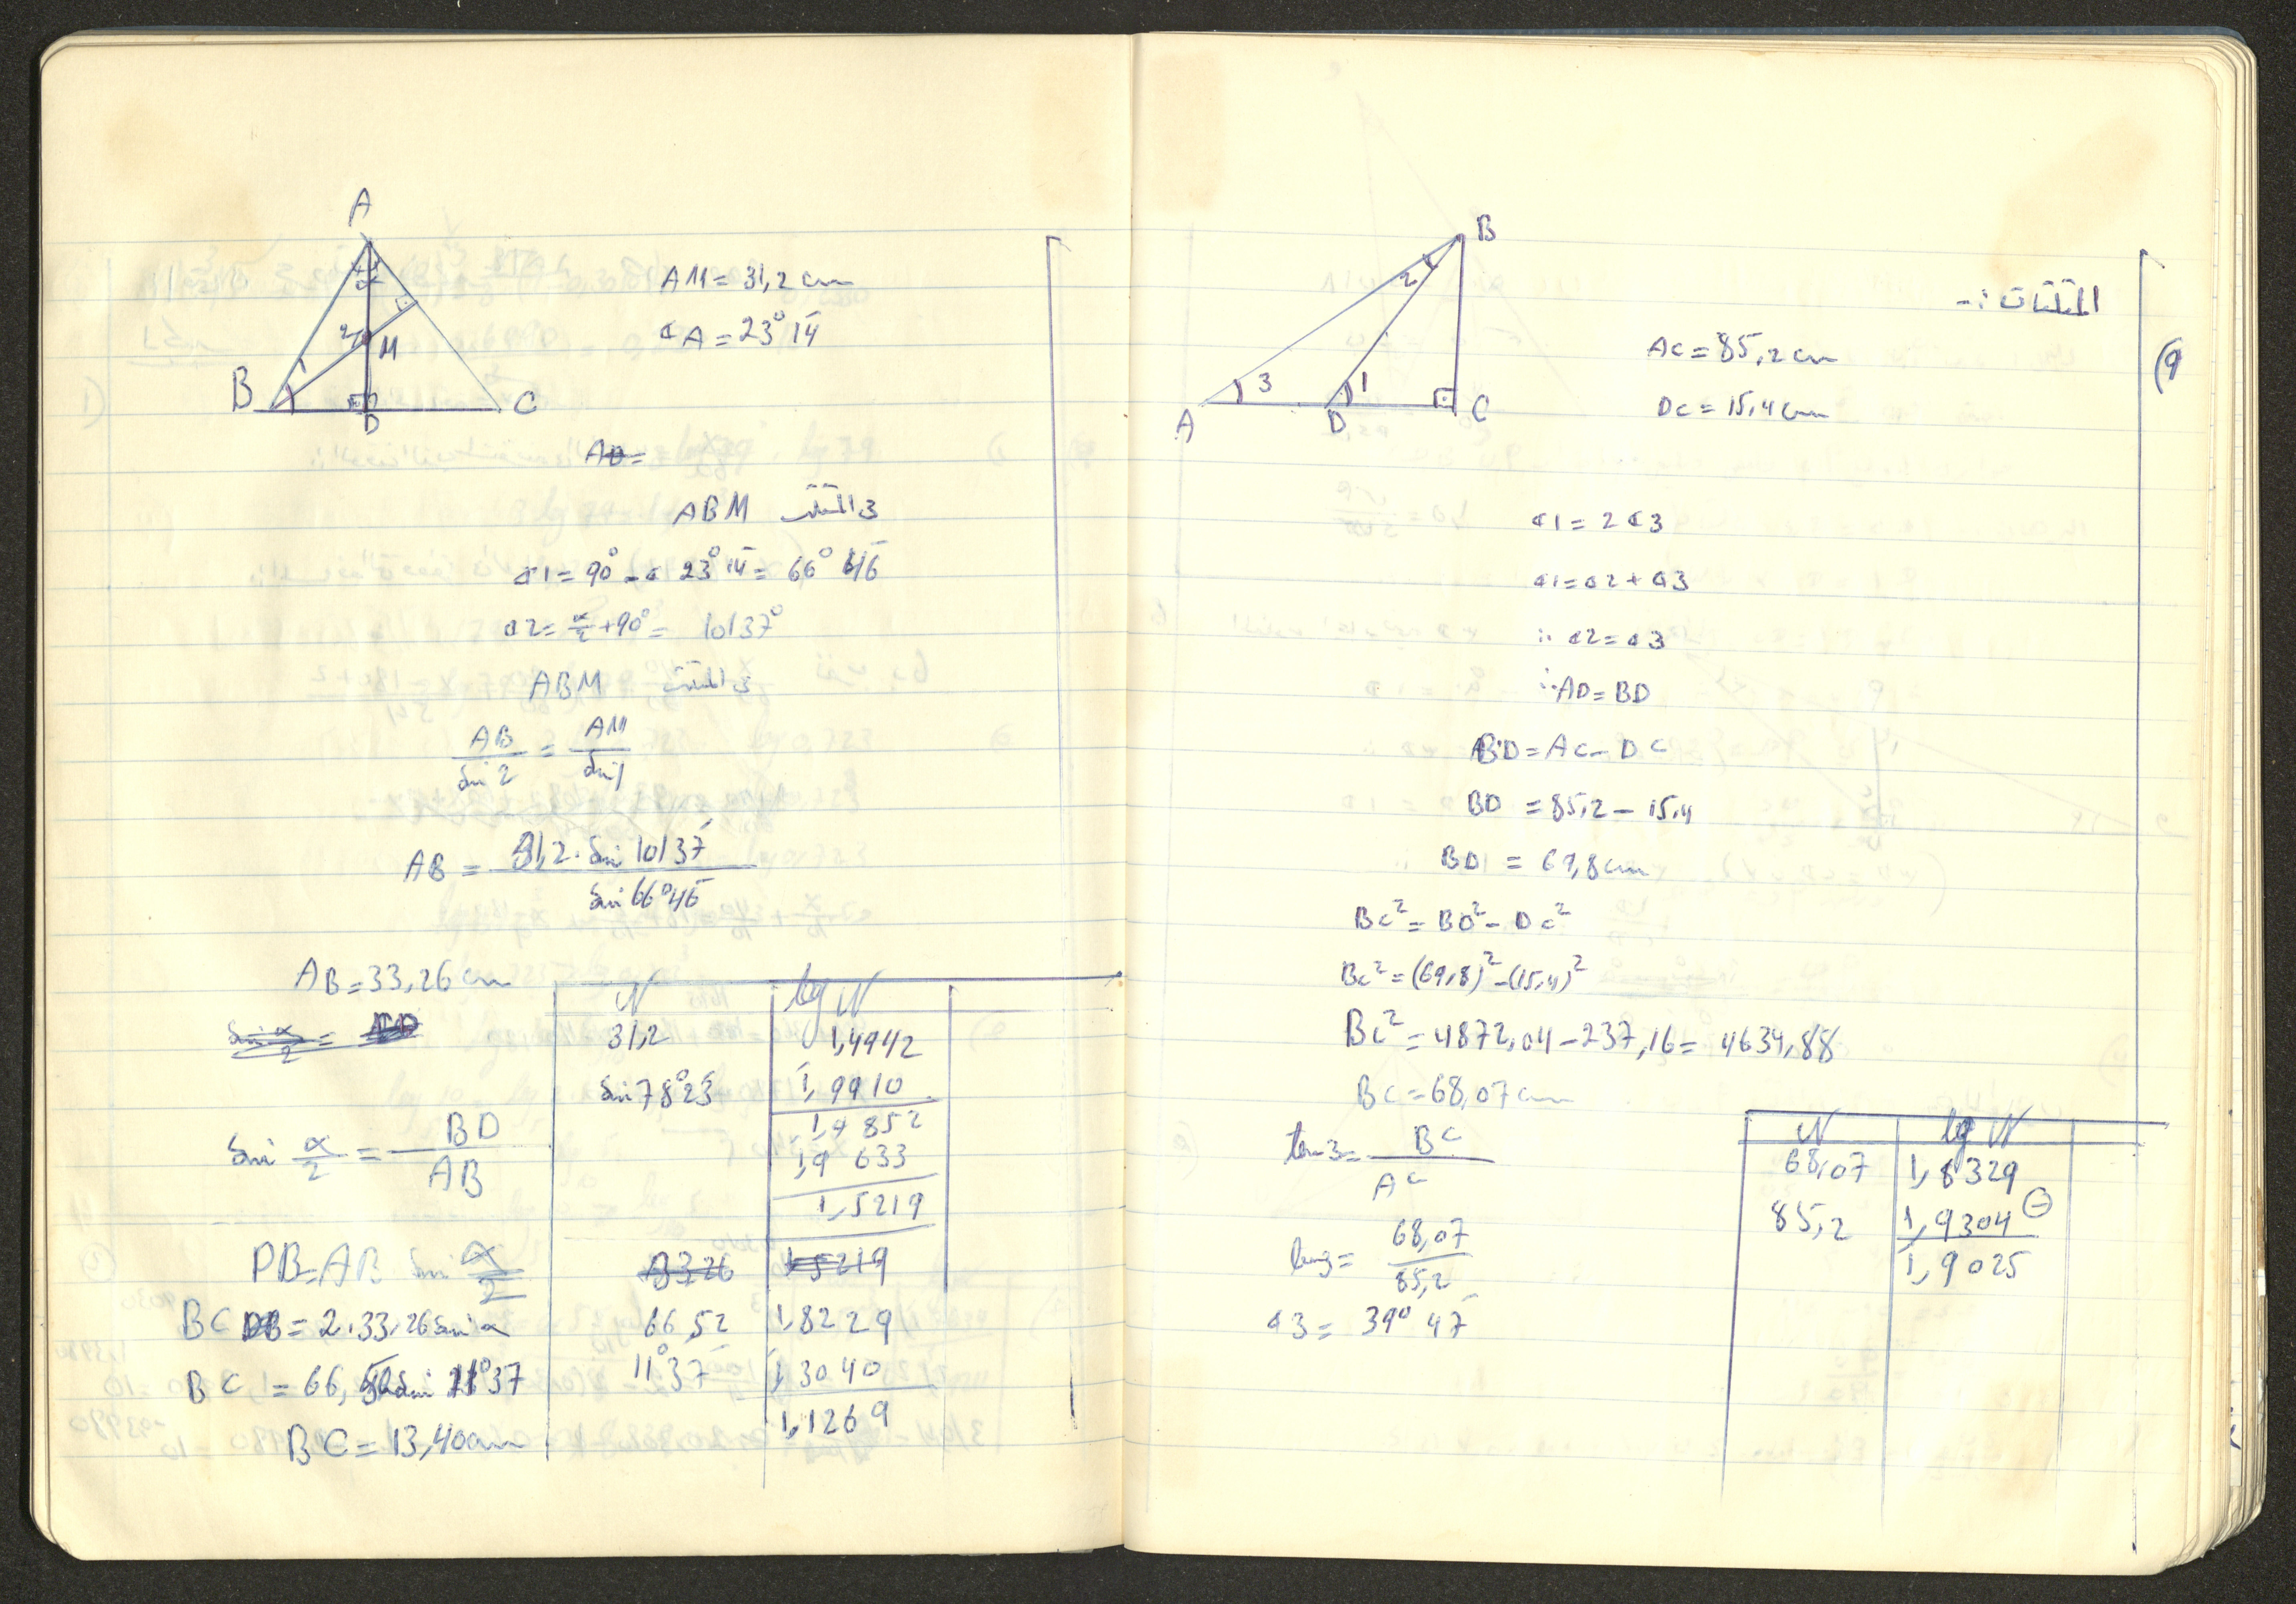 المثلثات :-
9)
B
2
3
1
A
D
C
AC = 85,2 cm
DC = 15,4 cm
∢1 = 2∢3
∢1 = ∢2 + ∢3
∴ ∢2 = ∢3
∴ AD = BD
BD = AC - DC
BD = 85,2 - 15,4
BD = 69,8 cm
BC² = BD² - DC²
BC² = (69,8)² - (15,4)²
BC² = 4872,04 - 237,16 = 4634,88
BC = 68,07 cm
tan3 = BC / AC
tan3 = 68,07 / 85,2
∢3 = 39° 47'
N lg N
68,07 1,8329
85,2 1,9304 ⊖
1̄,9025
A
α
2
M
1
B
D
C
AM = 31,2 cm
∢A = 23° 14'
AD =
في المثلث ABM
∢1 = 90° - ∢ 23° 14' = 66° 46'
∢2 = α/2 + 90° = 101 37°
في المثلث ABM
AB / Sin 2 = AM / Sin 1
AB = 31,2 · Sin 101 37' / Sin 66° 46'
AB = 33,26 cm
Sin α/2 =
Sin α/2 = BD / AB
DB = AB Sin α/2
BC = 2·33,26 Sin α
BC = 66,52 Sin 11° 37
BC = 13,40 cm
N lg N
31,2 1,4942
Sin 78° 23' 1̄,9910
1,4852
1̄,9633
1,5219
33,26 1,5219
66,52 1,8229
11° 37' 1̄,3040
1,1269